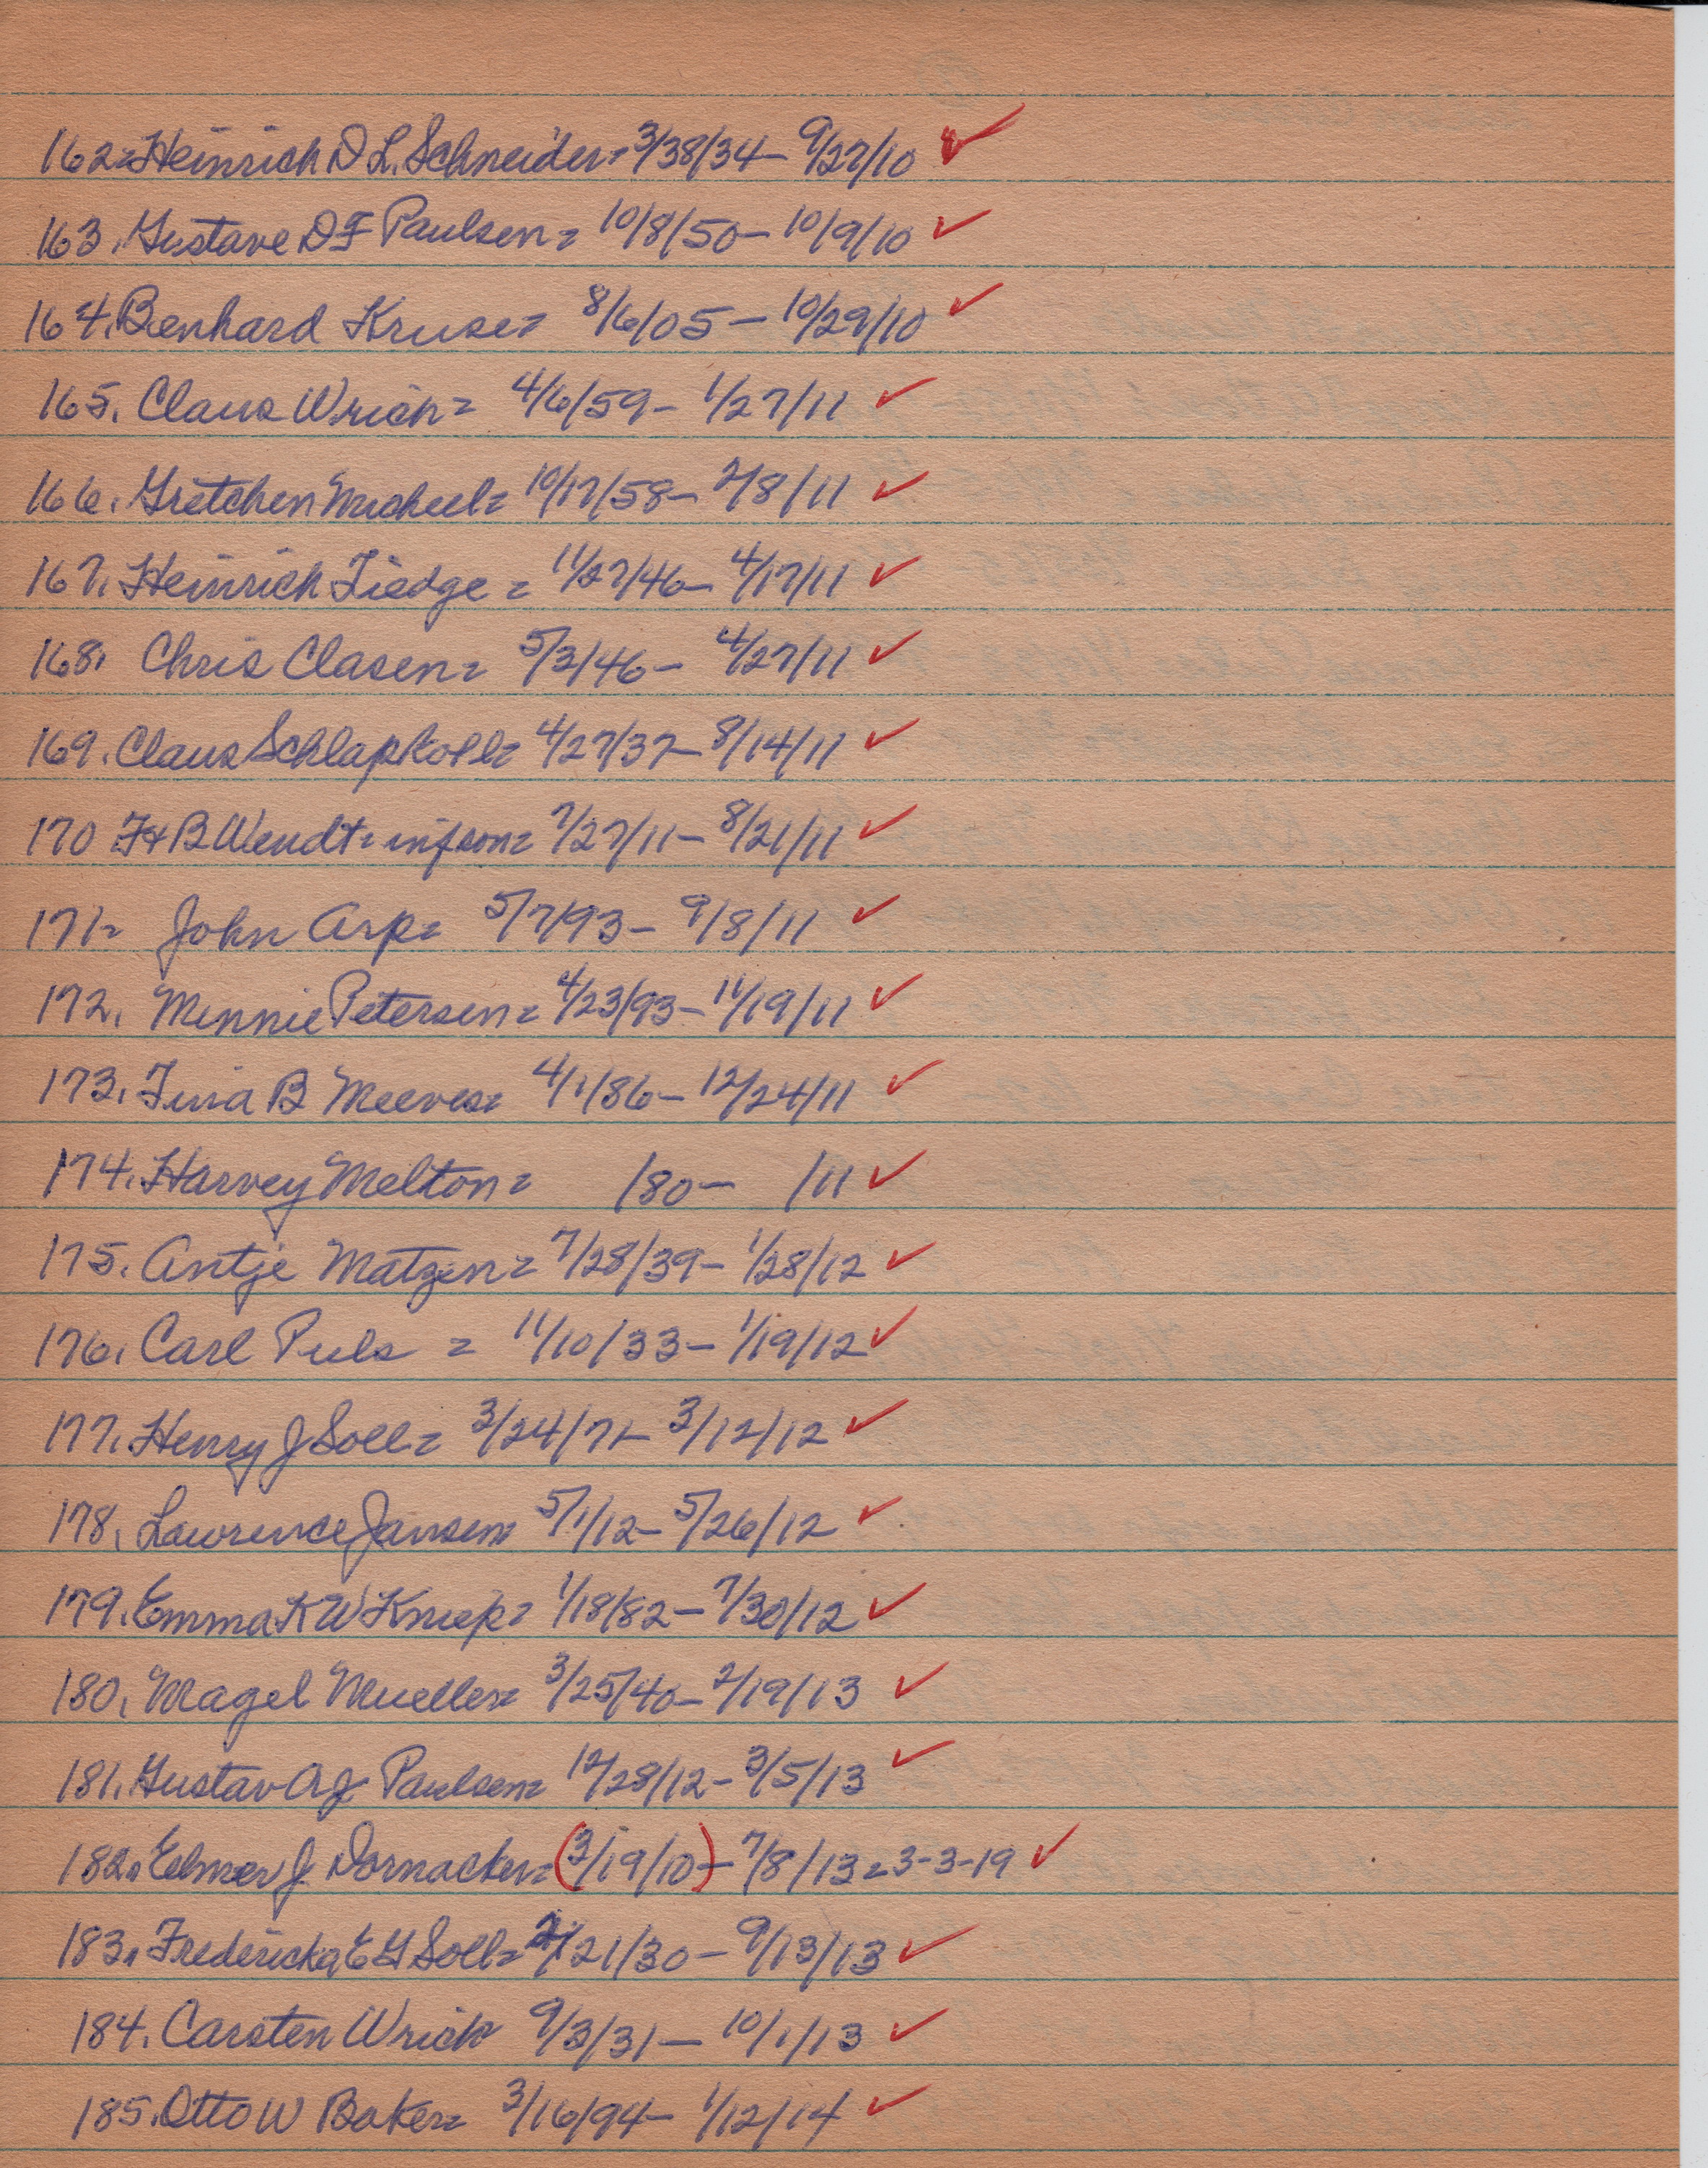 162= Heinrich D L. Schneider= 3/38/34- 9/27/10 ✓
163. Gustave D F Paulsen= 10/8/50- 10/9/10 ✓
164. Benhard Kruse= 8/6/05- 10/29/10 ✓
165. Claus Wrich= 4/6/59- 1/27/11 ✓
166. Gretchen Micheel= 10/17/58- 2/8/11 ✓
167. Heinrich Tiedge= 11/27/46- 4/17/11 ✓
168. Chris Clasen= 5/3/46- 4/27/11 ✓
169. Claus Schlapkohl= 4/27/37- 8/14/11 ✓
170 F+B Wendt= inf son= 7/27/11- 8/21/11 ✓
171= John Arp= 5/7/93- 9/8/11 ✓
172. Minnie Petersen= 4/23/93- 11/19/11 ✓
173. Tina B Meeves= 4/1/86- 12/24/11 ✓
174. Harvey Melton= /80- /11 ✓
175. Antje Matzen= 7/28/39- 1/28/12 ✓
176. Carl Puls = 11/10/33- 1/19/12 ✓
177. Henry J Soll= 3/24/71- 3/12/12 ✓
178. Lawrence Jansen= 5/1/12- 5/26/12 ✓
179. Emma K W Kniep= 1/18/82- 7/30/12 ✓
180. Magel Mueller= 3/25/40- 2/19/13 ✓
181. Gustav A J Paulsen= 12/28/12- 3/5/13 ✓
182. Elmer J Dornacker= (3/19/10)- 7/8/13= 3-3-19 ✓
183. Fredericka E G Soll= 2/21/30- 9/13/13 ✓
184. Carsten Wrich= 9/3/31- 10/1/13 ✓
185. Otto W Baker= 3/16/94- 1/12/14 ✓